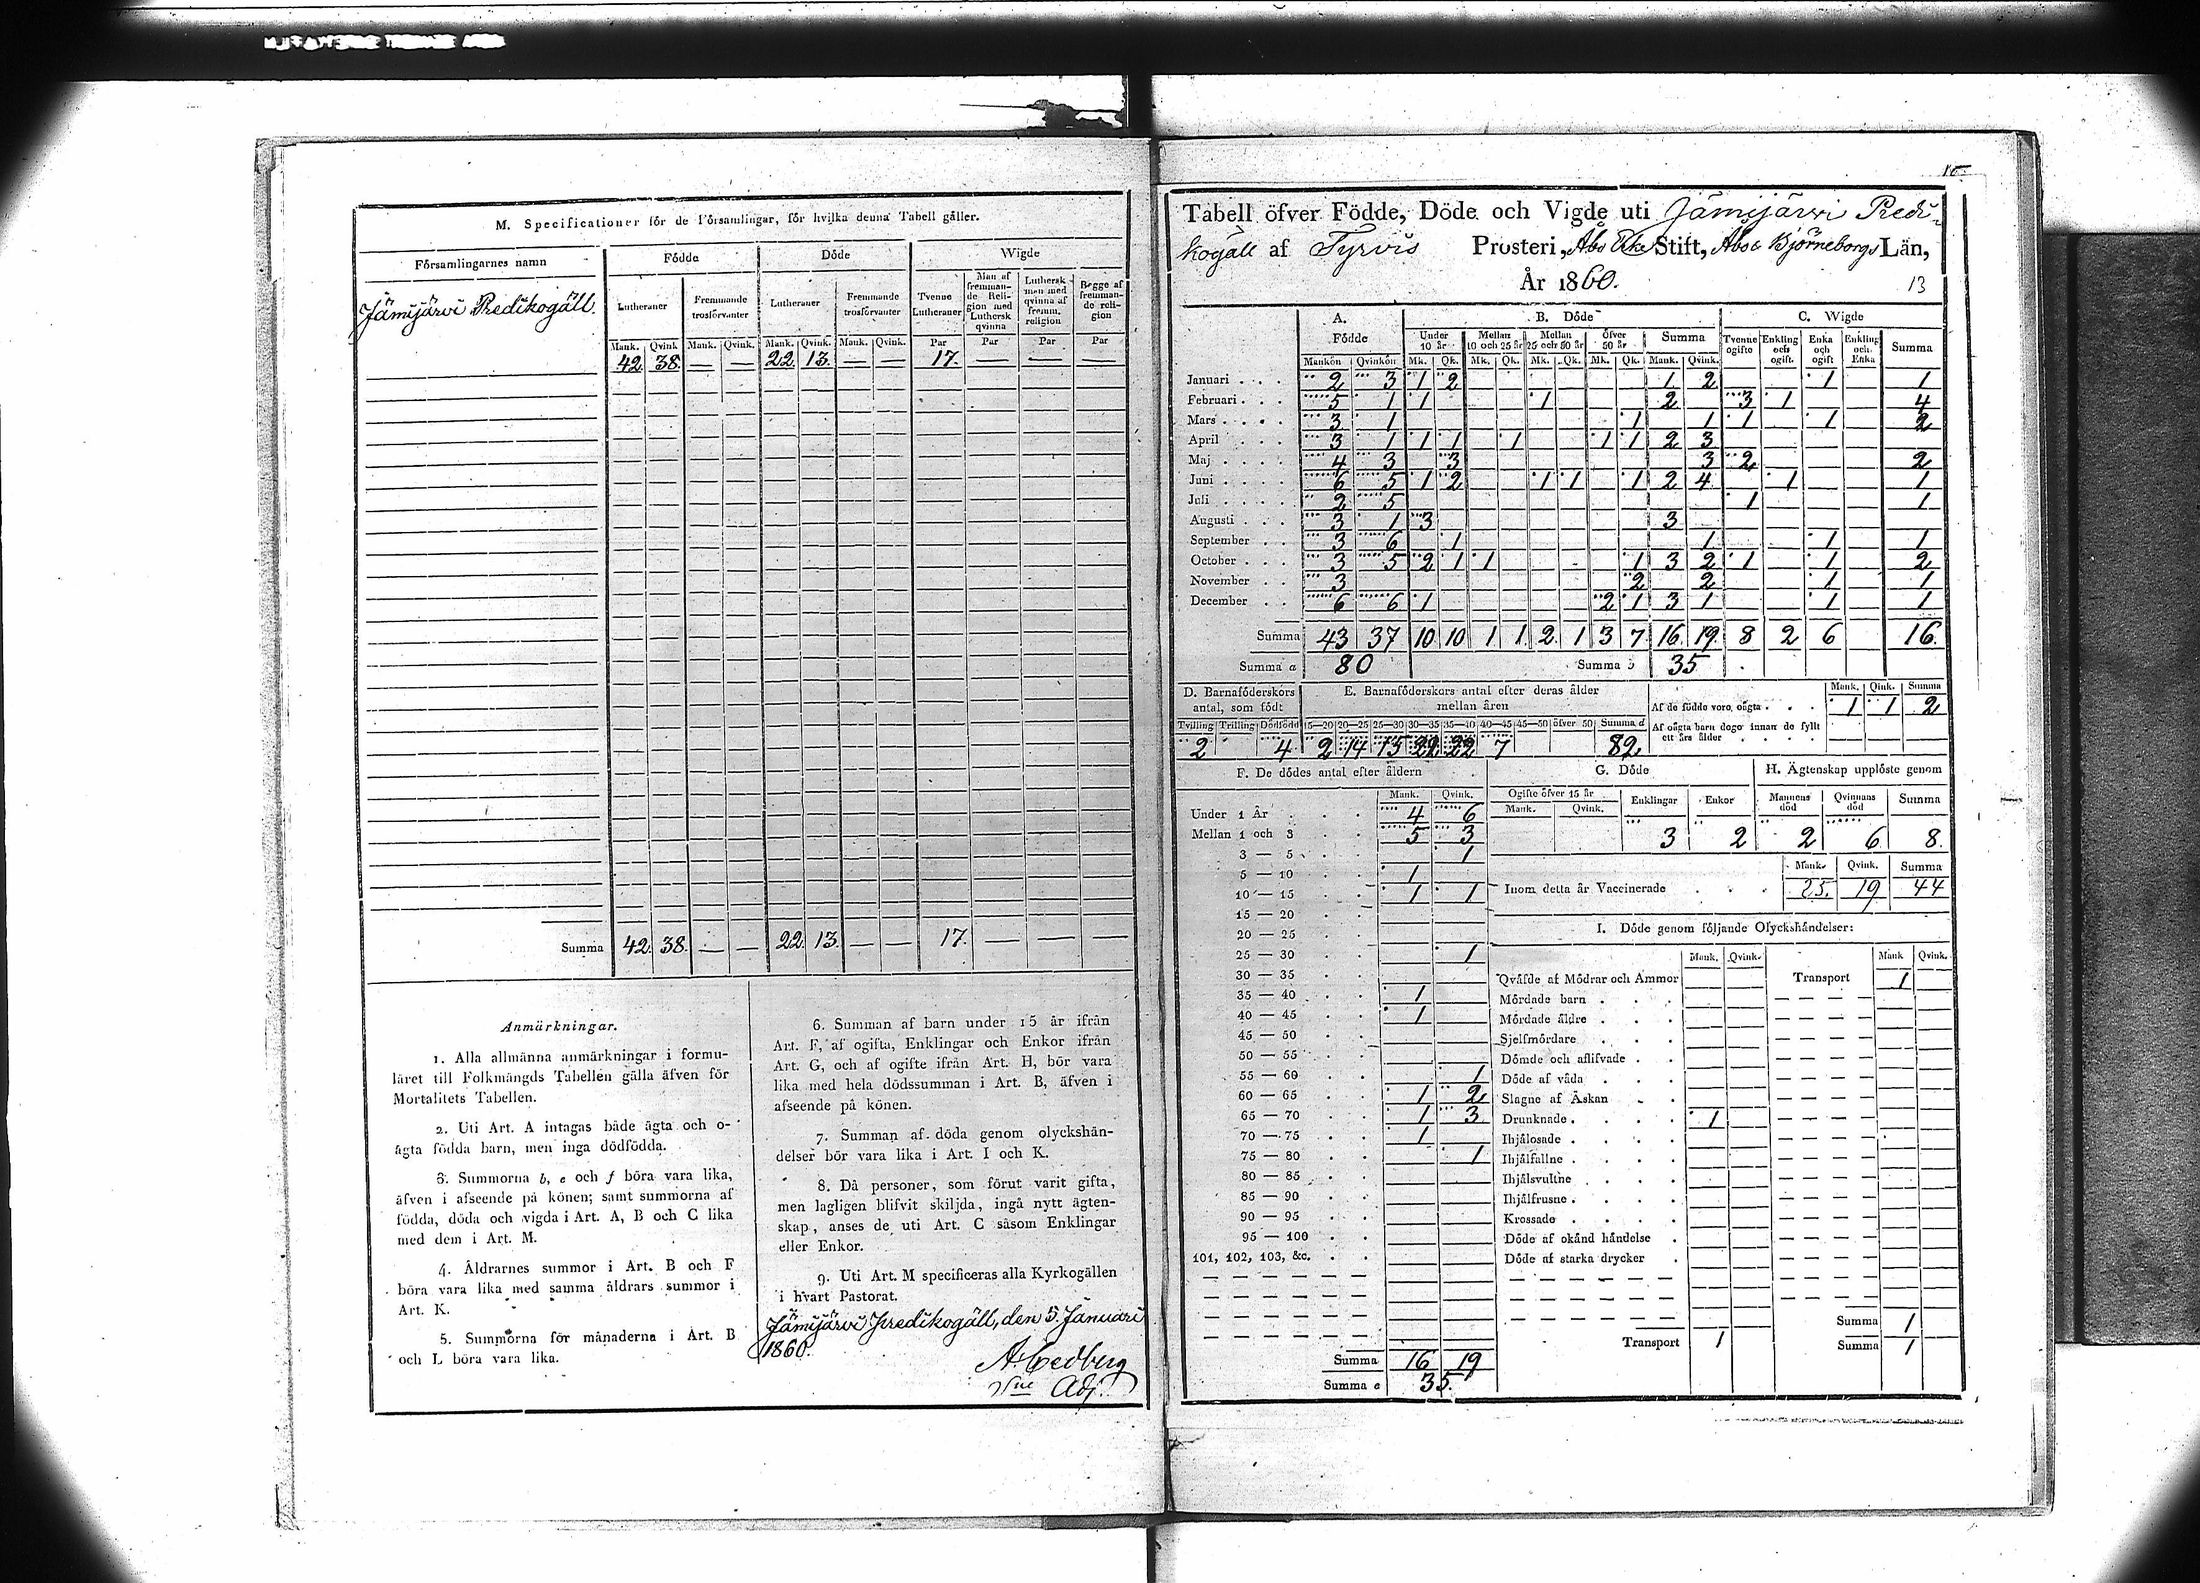 M. Specificationer för de Församlingar, för hvilka denna Tabell gäller.
Församlingarnes namn Födde Döde Wigde
Lutheraner Fremmande trosförvanter Lutheraner Fremmande trosförvanter Tvenne Lutheraner Man af fremmande Religion med Luthersk qvinna Luthersk man med qvinna af fremm. religion Begge af fremmande religion
Mank. Qvink. Mank. Qvink. Mank. Qvink. Mank. Qvink. Par Par Par Par
Jämijärvi Predikogäll. 42. 38. — — 22. 13. — — 17. — — —
Summa 42. 38. — — 22. 13. — — 17. — — —
Anmärkningar.
1. Alla allmänna anmärkningar i formu-
läret till Folkmängds Tabellen gälla äfven för
Mortalitets Tabellen.
2. Uti Art. A intagas både ägta och o-
ägta födda barn, men inga dödfödda.
3. Summorna b, e och f böra vara lika,
äfven i afseende på könen; samt summorna af
födda, döda och vigda i Art. A, B och C lika
med dem i Art. M.
4. Åldrarnes summor i Art. B och F
böra vara lika med samma åldrars summor i
Art. K.
5. Summorna för månaderna i Art. B
och L böra vara lika.
6. Summan af barn under 15 år ifrån
Art. F, af ogifta, Enklingar och Enkor ifrån
Art. G, och af ogifte ifrån Art. H, bör vara
lika med hela dödssumman i Art. B, äfven i
afseende på könen.
7. Summan af döda genom olyckshän-
delser bör vara lika i Art. I och K.
8. Då personer, som förut varit gifta,
men lagligen blifvit skiljda, ingå nytt ägten-
skap, anses de uti Art. C såsom Enklingar
eller Enkor.
9. Uti Art. M specificeras alla Kyrkogällen
i hvart Pastorat.
Jämijärvi Predikogäll, den 5. Januari
1860.
A. Cedberg
Adj.
Tabell öfver Födde, Döde och Vigde uti Jämijärvi Predi-
kogäll af Tyrvis Prosteri, Åbo Erke Stift, Åbo & Björneborgs Län,
År 1860. 13
A. Födde B. Döde C. Wigde
Under 10 år Mellan 10 och 25 år Mellan 25 och 50 år Öfver 50 år Summa Tvenne ogifte Enkling och ogift. Enka och ogift Enkling och Enka Summa
Mankön Qvinkön Mk. Qk. Mk. Qk. Mk. Qk. Mk. Qk. Mank. Qvink.
Januari 2 3 1 2 1 2 1 1
Februari 5 1 1 1 2 3 1 4
Mars 3 1 1 1 1 1 2
April 3 1 1 1 1 1 1 2 3
Maj 4 3 3 3 2 2
Juni 6 5 1 2 1 1 1 2 4 1 1
Juli 2 5 1 1
Augusti 3 1 3 3
September 3 6 1 1 1 1
October 3 5 2 1 1 1 3 2 1 1 2
November 3 2 2 1 1
December 6 6 1 2 1 3 1 1 1
Summa 43 37 10 10 1 1 2 1 3 7 16 19 8 2 6 16.
Summa a 80 Summa b 35
D. Barnaföderskors antal, som födt
Tvilling Trilling Dödfödd
2 4
E. Barnaföderskors antal efter deras ålder mellan åren
15—20 20—25 25—30 30—35 35—40 40—45 45—50 öfver 50 Summa d
2 14 15 22 22 7 82
Mank. Qink. Summa
Af de födde voro oägta 1 1 2
Af oägta barn dogo innan de fyllt
ett års ålder
F. De dödes antal efter åldern
Mank. Qvink.
Under 1 År 4 6
Mellan 1 och 3 5 3
3 — 5 1
5 — 10 1
10 — 15 1 1
15 — 20
20 — 25
25 — 30 1
30 — 35
35 — 40 1
40 — 45 1
45 — 50
50 — 55
55 — 60 1
60 — 65 1 2
65 — 70 1 3
70 — 75 1
75 — 80 1
80 — 85
85 — 90
90 — 95
95 — 100
101, 102, 103, &c.
Summa 16 19
Summa e 35.
G. Döde
Ogifte öfver 15 år Enklingar Enkor
Mank. Qvink.
3 2
H. Ägtenskap upplöste genom
Mannens död Qvinnans död Summa
2 6 8.
Mank. Qvink. Summa
Inom detta år Vaccinerade 25. 19 44
I. Döde genom följande Olyckshändelser:
Mank. Qvink. Mank Qvink.
Qväfde af Mödrar och Ammor Transport 1
Mördade barn
Mördade äldre
Sjelfmördare
Dömde och aflifvade
Döde af våda
Slagne af Åskan
Drunknade 1
Ihjälosade
Ihjälfallne
Ihjälsvultne
Ihjälfrusne
Krossade
Döde af okänd händelse
Döde af starka drycker
Summa 1
Transport 1 Summa 1